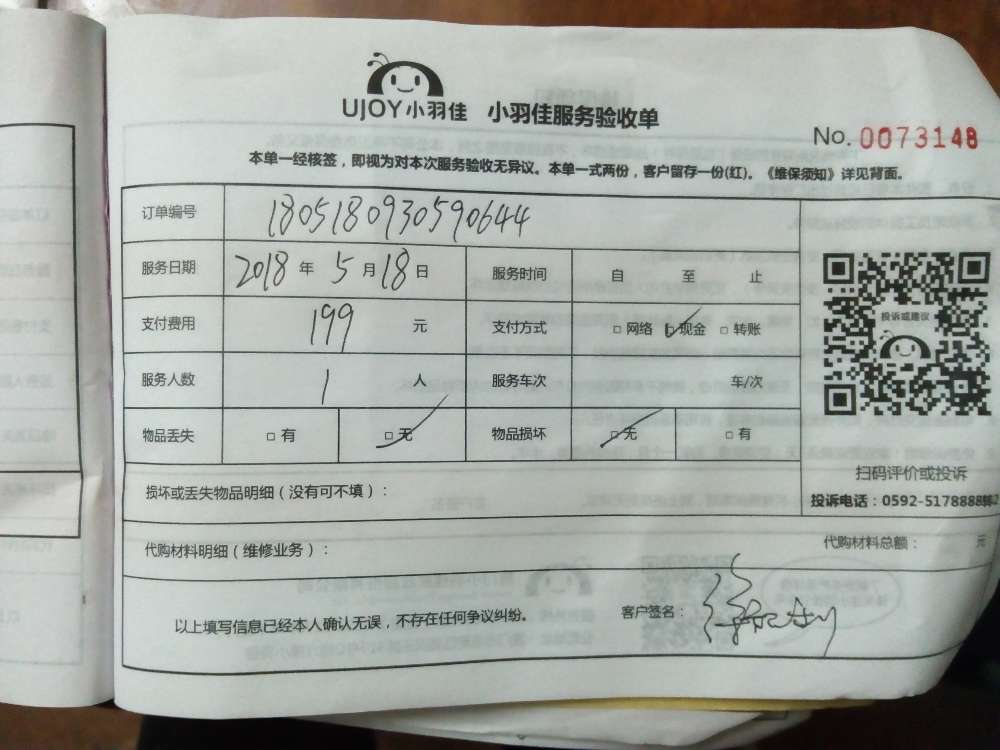 UJOY小羽佳 小羽佳服务验收单
No. 0073148
本单一经核签，即视为对本次服务验收无异议。本单一式两份，客户留存一份(红)。《维保须知》详见背面。
订单编号 1805180930590644
服务日期 2018 年 5 月 18 日 服务时间 自 至 止
支付费用 199 元 支付方式 □网络 □现金 □转账
服务人数 1 人 服务车次 车/次
物品丢失 □有 □无 物品损坏 □无 □有
投诉或建议
扫码评价或投诉
投诉电话：0592-5178888转2
损坏或丢失物品明细（没有可不填）：
代购材料明细（维修业务）： 代购材料总额： 元
以上填写信息已经本人确认无误，不存在任何争议纠纷。 客户签名：